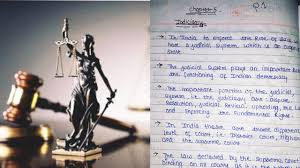 Chapter-5
Q1
Judiciary
→ In India to the Rule of
have a judicial system which is an
→ The judicial system plays an important
the functioning of Indian democracy
→ The important function of the judicial
system i.e the judiciary are Dispute
Resolution, judicial Review upholding the
and Enforcing the Fundamental Rights
→ In India there are three different
level of court, i.e District court, high
and the supreme court
→ The law declared by the supreme
binding on all courts